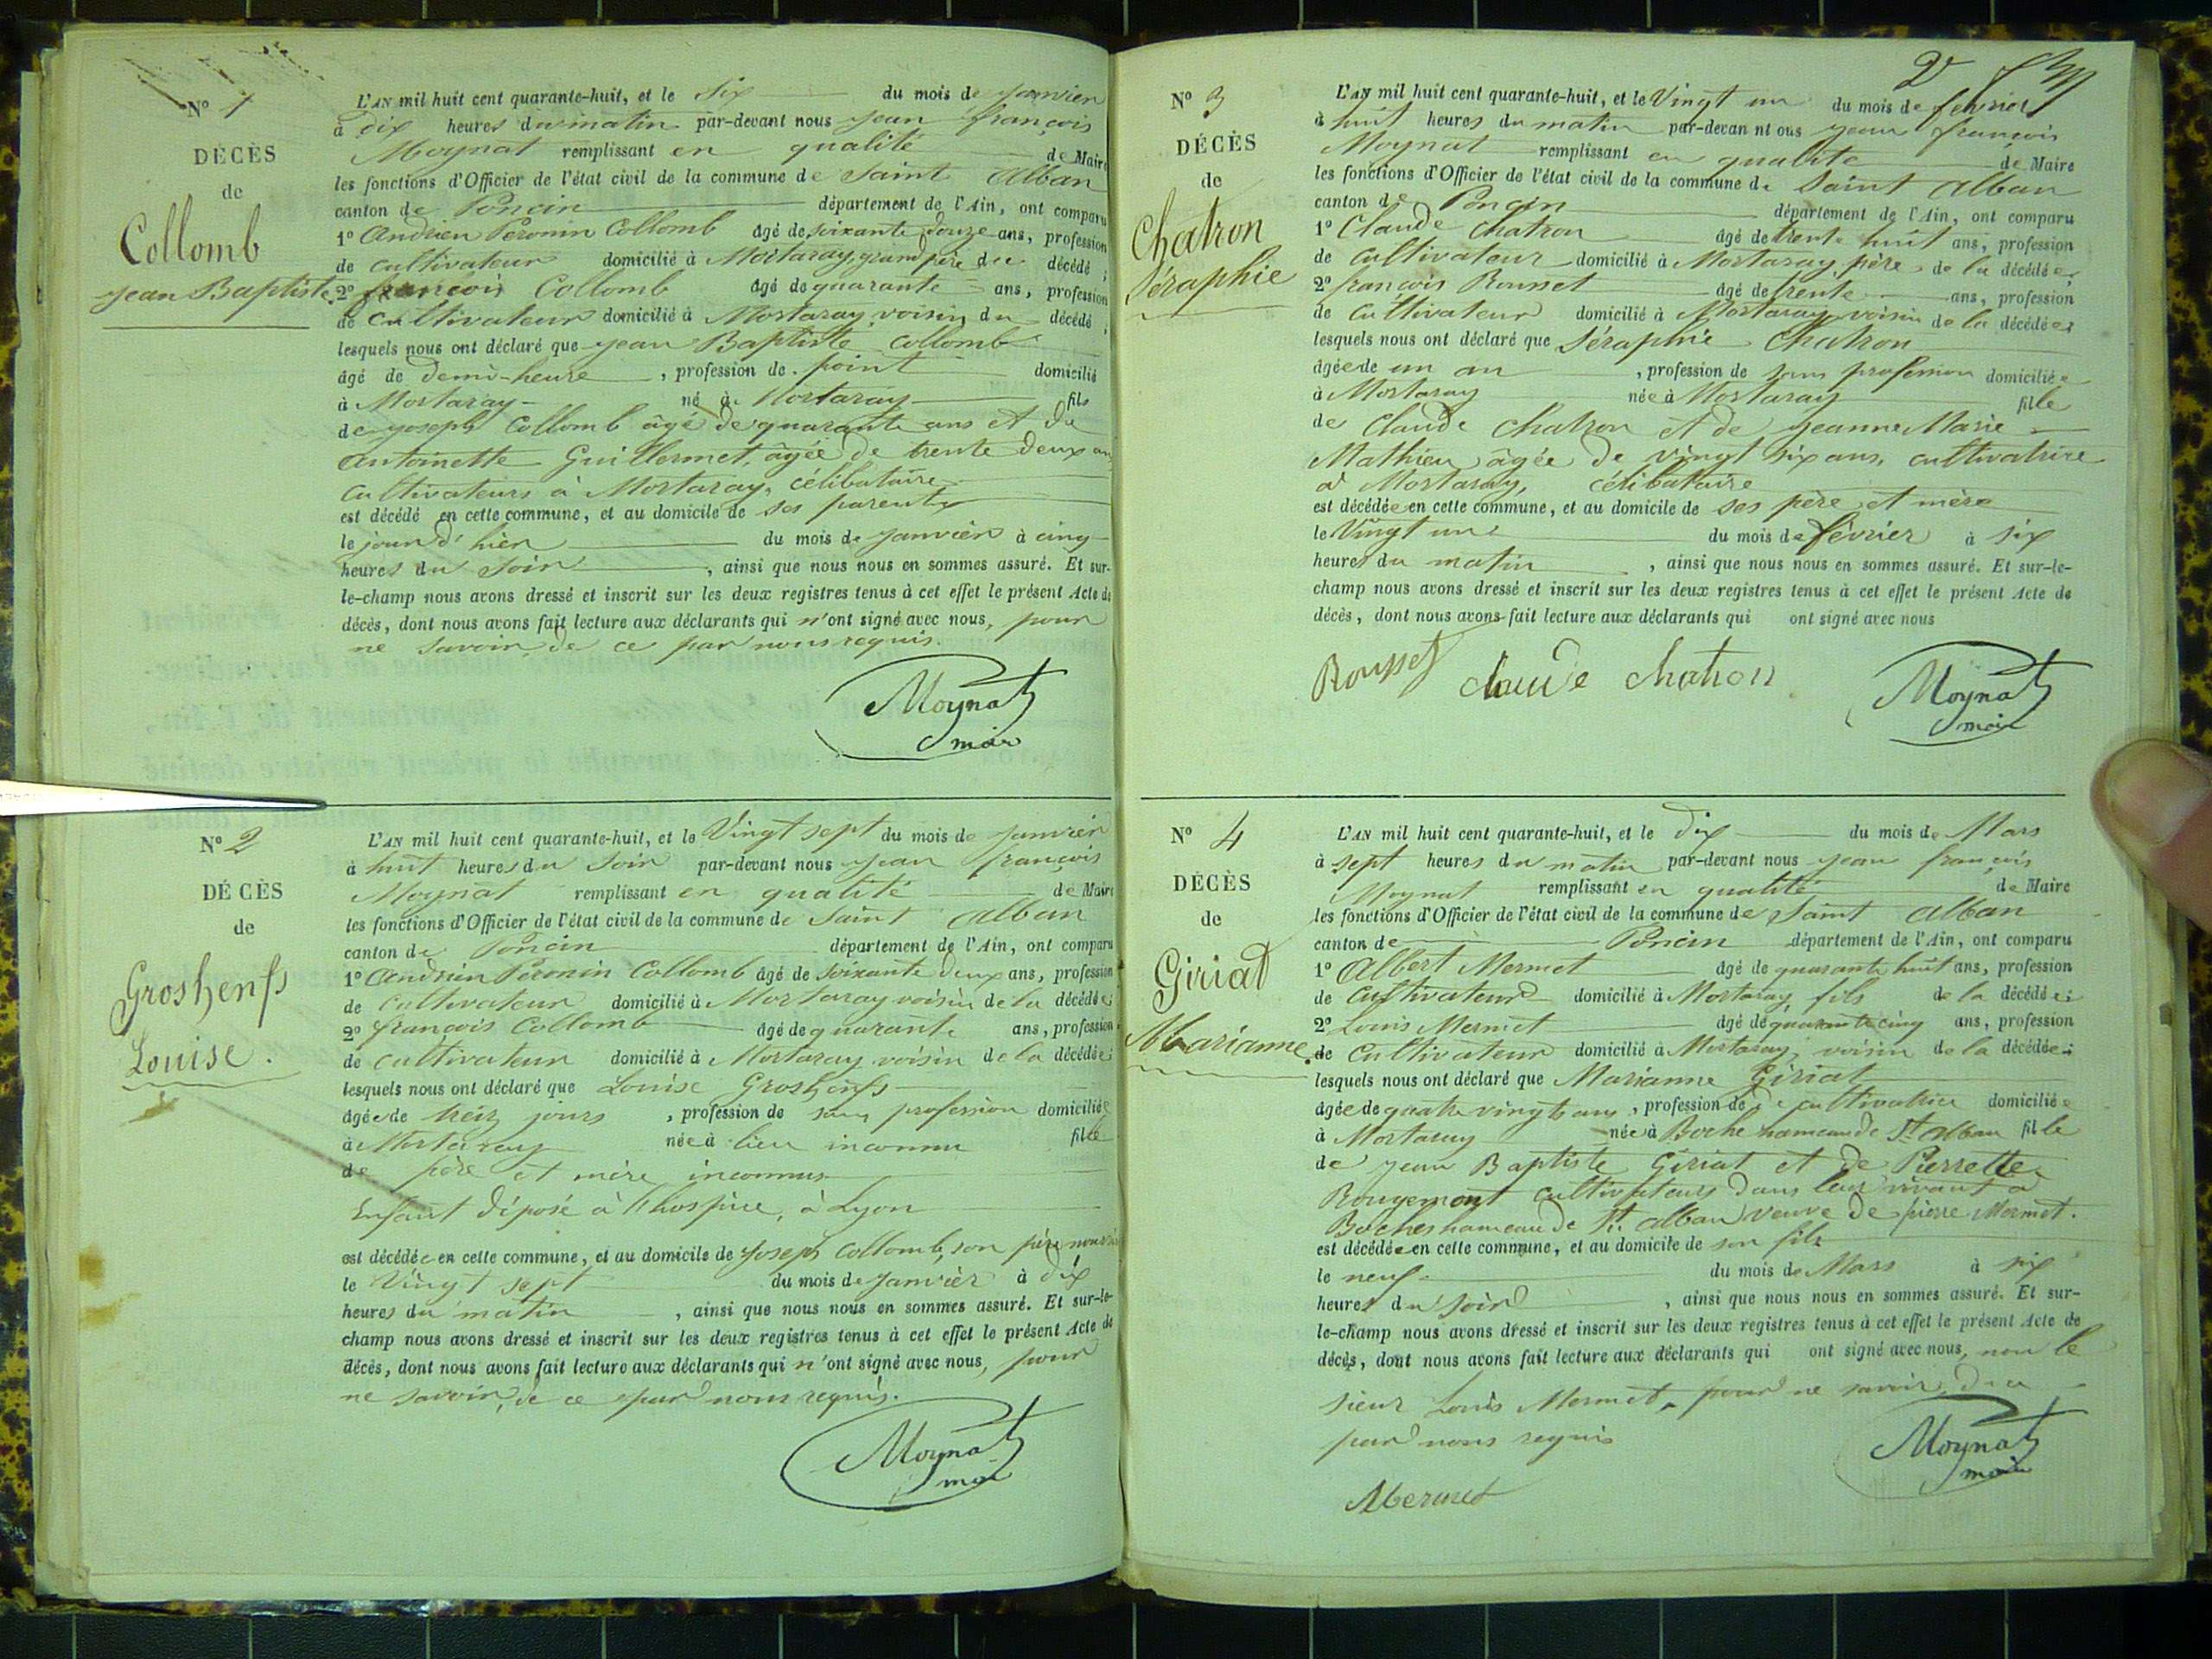 N° 1
DÉCÈS
de
Collomb
Jean Baptiste.
L'AN mil huit cent quarante-huit, et le six du mois de janvier
à dix heures du matin par-devant nous jean françois
Moynat remplissant en qualité de Maire
les fonctions d'Officier de l'état civil de la commune de Saint Alban
canton de Poncin département de l'Ain, ont comparu
1° Andrien Peronin Collomb âgé de soixante douze ans, profession
de cultivateur domicilié à Mortaray, grand père du décédé ;
2° françois Collomb âgé de quarante ans, profession
de cultivateur domicilié à Mortaray voisin du décédé ;
lesquels nous ont déclaré que jean Baptiste Collomb
âgé de demi-heure , profession de point domicilié
à Mortaray né à Mortaray fils
de joseph Collomb âgé de quarante ans et de
Antoinette Guillermet, âgée de trente deux ans
cultivateurs à Mortaray, célibataire
est décédé en cette commune, et au domicile de ses parents
le jour d'hier du mois de janvier à cinq
heures du soir , ainsi que nous nous en sommes assuré. Et sur-
le-champ nous avons dressé et inscrit sur les deux registres tenus à cet effet le présent Acte de
décès, dont nous avons fait lecture aux déclarants qui n'ont signé avec nous, pour
ne savoir, de ce par nous requis.
Moynat
maire
N° 2
DÉCÈS
de
Groshenfs
Louise.
L'AN mil huit cent quarante-huit, et le Vingt sept du mois de janvier
à huit heures du soir par-devant nous jean françois
Moynat remplissant en qualité de Maire
les fonctions d'Officier de l'état civil de la commune de Saint Alban
canton de Poncin département de l'Ain, ont comparu
1° Andrien Peronin Collomb âgé de soixante deux ans, profession
de cultivateur domicilié à Mortaray voisin de la décédée ;
2° françois Collomb âgé de quarante ans, profession
de cultivateur domicilié à Mortaray voisin de la décédée ;
lesquels nous ont déclaré que Louise Groshenfs
âgée de treiz jours , profession de sans profession domiciliée
à Mortaray née à lieu inconnu fille
de père et mère inconnus
Enfant déposé à l'hospice, à Lyon
est décédée en cette commune, et au domicile de Joseph Collomb, son père nourricier
le Vingt sept du mois de janvier à dix
heures du matin , ainsi que nous nous en sommes assuré. Et sur-le-
champ nous avons dressé et inscrit sur les deux registres tenus à cet effet le présent Acte de
décès, dont nous avons fait lecture aux déclarants qui n'ont signé avec nous, pour
ne savoir, de ce par nous requis.
Moynat
maire
2
N° 3
DÉCÈS
de
Chatron
Séraphie
L'AN mil huit cent quarante-huit, et le Vingt un du mois de fevrier
à huit heures du matin par-devan nt ous jean françois
Moynat remplissant en qualité de Maire
les fonctions d'Officier de l'état civil de la commune de Saint Alban
canton de Poncin département de l'Ain, ont comparu
1° Claude Chatron âgé de trente huit ans, profession
de Cultivateur domicilié à Mortaray, père de la décédée ;
2° françois Rousset âgé de trente ans, profession
de Cultivateur domicilié à Mortaray voisin de la décédée ;
lesquels nous ont déclaré que Séraphie Chatron
âgée de un an , profession de sans profession domiciliée
à Mortaray née à Mortaray fille
de Claude Chatron et de jeanne Marie
Mathieu âgée de vingt six ans, cultivatrice
à Mortaray, célibataire
est décédée en cette commune, et au domicile de ses père et mère
le Vingt un du mois de février à six
heures du matin , ainsi que nous nous en sommes assuré. Et sur-le-
champ nous avons dressé et inscrit sur les deux registres tenus à cet effet le présent Acte de
décès, dont nous avons fait lecture aux déclarants qui ont signé avec nous
Rousset claude chatron Moynat
maire
N° 4
DÉCÈS
de
Giriat
Marianne.
L'AN mil huit cent quarante-huit, et le dix du mois de Mars
à sept heures du matin par-devant nous jean françois
Moynat remplissant en qualité de Maire
les fonctions d'Officier de l'état civil de la commune de Saint Alban
canton de Poncin département de l'Ain, ont comparu
1° Albert Mermet âgé de quarante huit ans, profession
de Cultivateur domicilié à Mortaray fils de la décédée ;
2° Louis Mermet âgé de quarante cinq ans, profession
de Cultivateur domicilié à Mortaray, voisin de la décédée ;
lesquels nous ont déclaré que Marianne Giriat
âgée de quatre vingts ans , profession de de cultivatrice domiciliée
à Mortaray née à Boche hameau de St Alban fille
de jean Baptiste Giriat et de Pierrette
Rougemont cultivateurs dans leur vivant à
Boches hameau de St. alban veuve de pierre Mermet.
est décédée en cette commune, et au domicile de son fils
le neuf du mois de Mars à six
heures du soir , ainsi que nous nous en sommes assuré. Et sur-
le-champ nous avons dressé et inscrit sur les deux registres tenus à cet effet le présent Acte de
décès, dont nous avons fait lecture aux déclarants qui ont signé avec nous, non le
sieur Louis Mermet, pour ne savoir, de ce
par nous requis
Mermet Moynat
maire